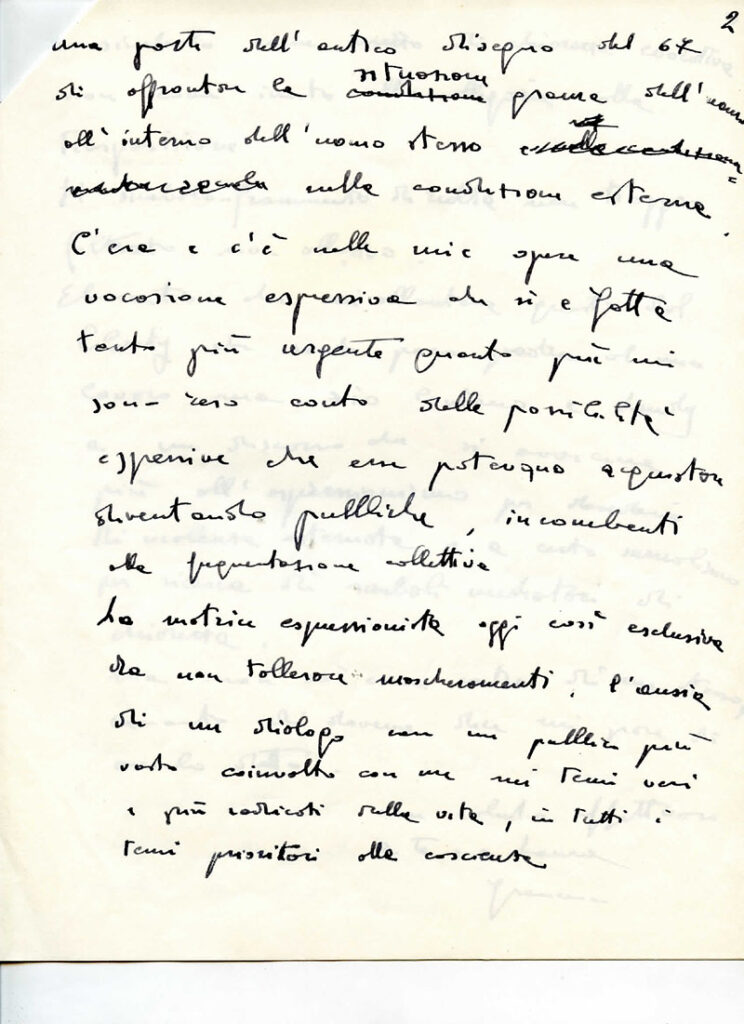 2
una parte dell'antico disegno del 67
di affrontare la condizione situazione dell'uomo
all'interno dell'uomo stesso
nella condizione esterna.
C'era e c'è nelle mie opere una
vocazione espressiva che si è fatta
tanto più urgente quanto più mi
son reso conto delle possibilità
espressive che esse potevano acquistare
diventando pubbliche, incombenti
alla frequentazione collettiva
La matrice espressionista oggi così esclusiva
da non tollerare mascheramenti, l'ansia
di un dialogo con un pubblico più
vasto coinvolto con me nei temi veri
e più radicati della vita, in tutti i
temi prioritari alla coscienza